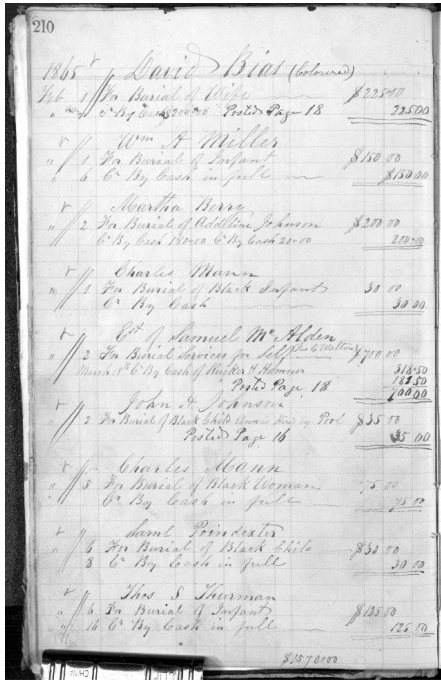 210
1865 David Bias (Coloured)
Feb 1 For Burial of Wife $225.00
" " Cr By Cash 200.00 Posted Page 18 225.00
Wm A Miller
" 1 For Burial of Infant $150.00
" 6 Cr By Cash in full $150.00
Martha Berry
" 2 For Burial of Addeline Johnson $200.00
Cr By Cash 180.00 Cr By Cash 20.00 200.00
Charles Mann
" 2 For Burial of Black Infant 30.00
Cr By Cash 30.00
Est of Samuel McAlden
" 2 For Burial Services for Self (Jas C Walton) $700.00
March 18 Cr By Cash of Rucker & 518.50
Posted Page 18 181.50
700.00
John A Johnson
" 2 For Burial of Black Child by Pool $35.00
Posted Page 16 35.00
Charles Mann
" 5 For Burial of Black Woman 75.00
Cr By Cash in full 75.00
Saml Poindexter
" 6 For Burial of Black Child $30.00
" 8 Cr By Cash in full 30.00
Thos S Thurman
" 6 For Burial of Infant $125.00
" 16 Cr By Cash in full 125.00
$1570.00